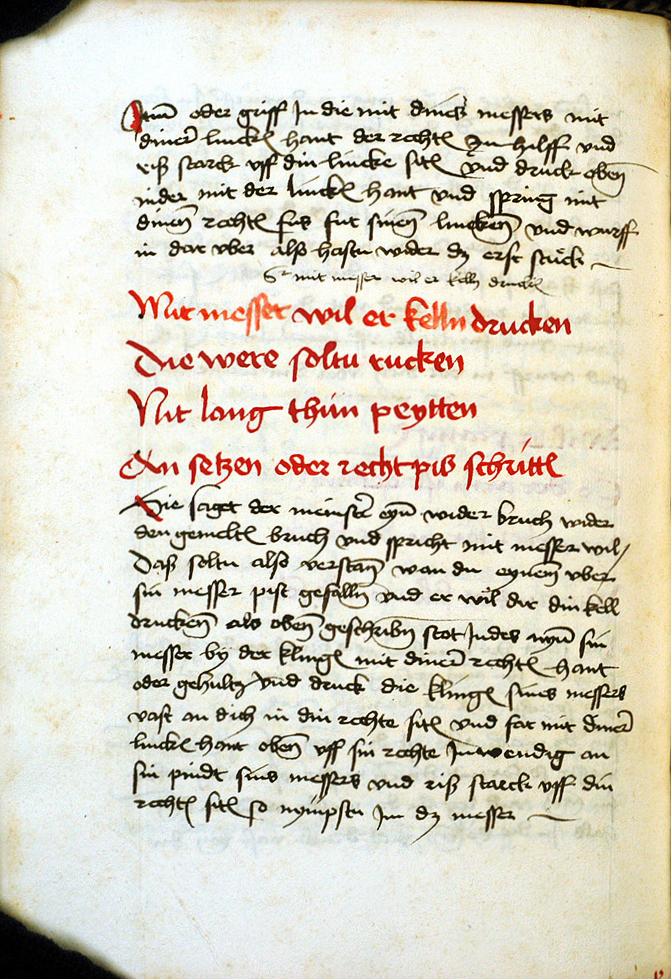 Itm̄ oder griff In die mit dines messers mit
diner linckē hant der rechtē zu hilff vnd
riß starck vff din lincke sitē vnd druck oben
nider mit der linckē hant vnd spring mit
dinem rechtē fus fur sinen lincken vnd wurff
in dar vber also hastu wider dz erst stuck
mit messer wil er kelln drucken
Mit messer wil er kelln drucken
Die were soltu rucken
Nit lang thun peytten
An setzen oder recht pis schrittē
Hie saget der meinster eyn wider bruch wider
den gemeltē bruch vnd spricht mit messer wil
Daß soltu also verstan wan du eynem vber
sin messer pist gefalln vnd er wil dir din kell
drucken als oben geschribn stot Indes nym sin
messer by der klingē mit diner rechtē hant
oder gehultz vnd druck die klingē sines messers
vast an dich in din rechte sitē vnd far mit diner
linckē hant oben vff sin rechte Inwendig an
sin pindt sins messers vnd riß starck vff din
rechtē sitē so nympstu Im dz messer